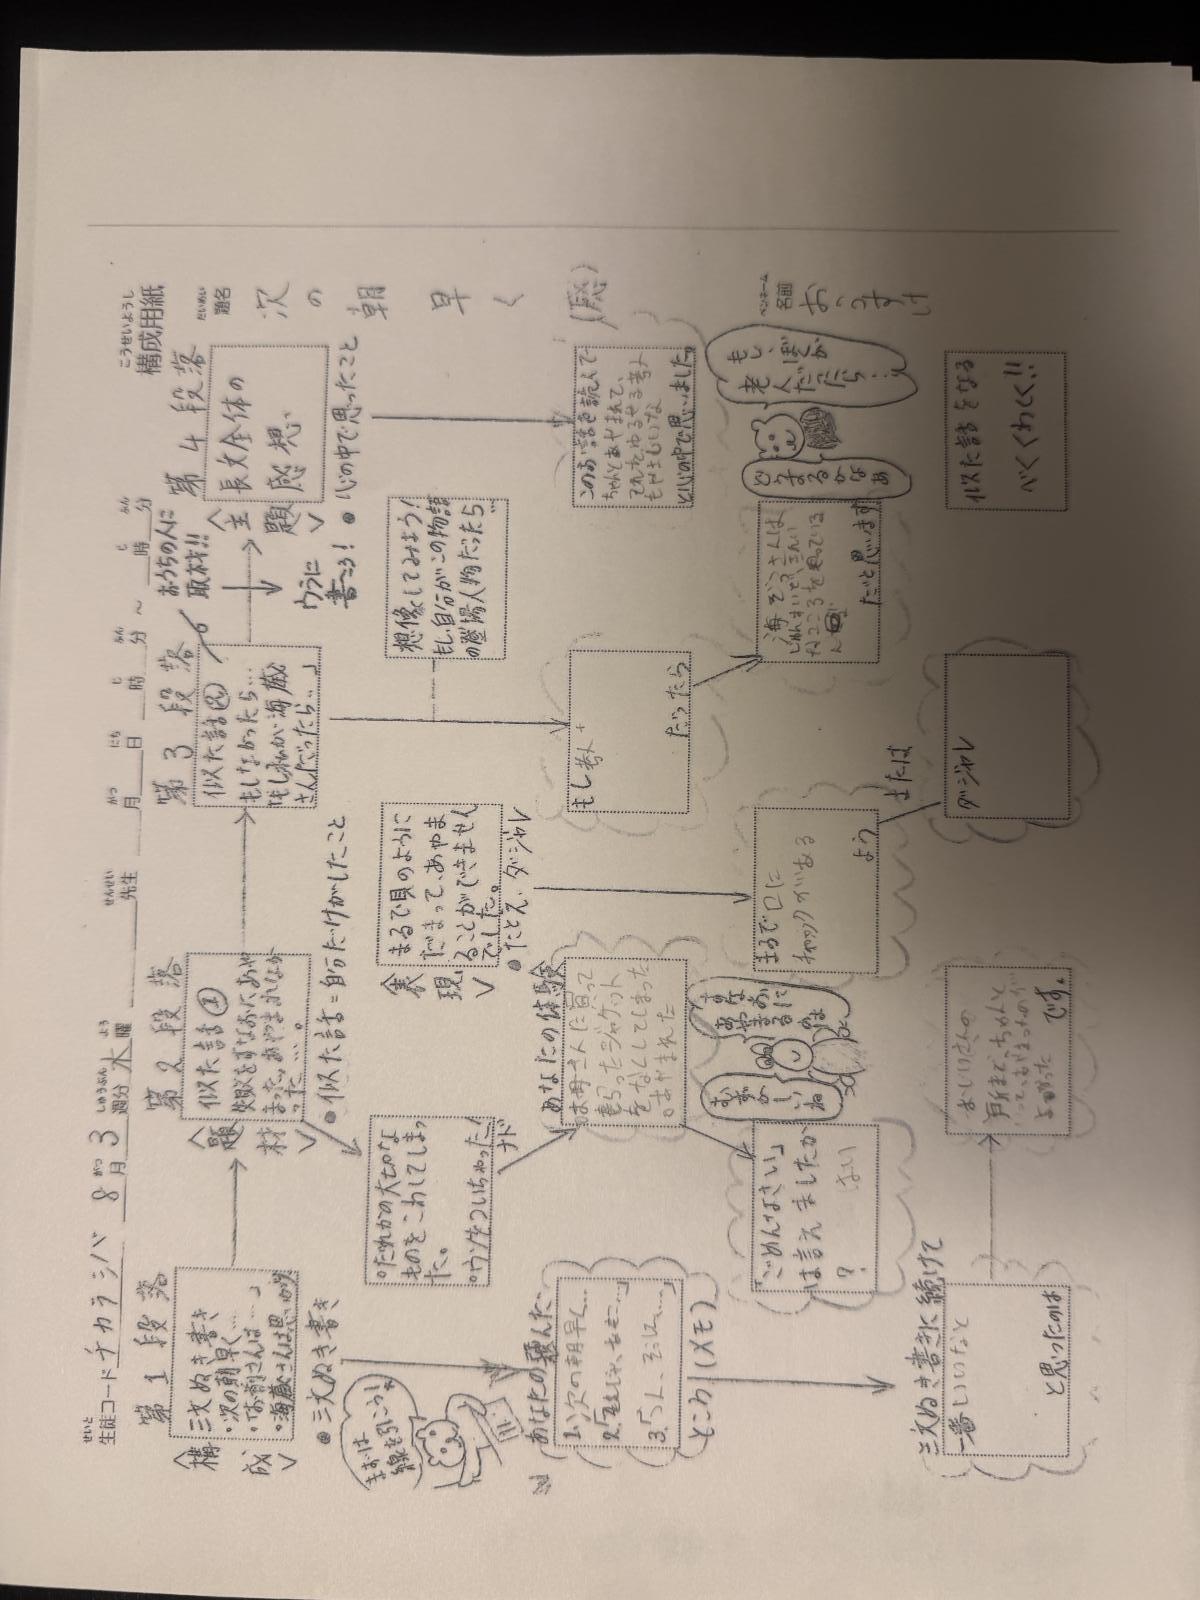 構成用紙
こうせいようし
せいと
生徒コード チカラシバ 8月 3週分 水曜 先生 月 日 時 分 ～ 時 分
がつ しゅうぶん よう せんせい がつ にち じ ふん じ ふん
だいめい
題名
次の朝早く (感)
ペンネーム
名前
おつうすけ
第1段落
〈構成〉
三文ぬき書き
・次の朝早く…
・「お前さんは…」
・海蔵さんは思いがけ
●三文ぬき書き
まずは
線を引こう！
あなたの選んだ
1.次の朝早く…
ところ（メモ）
三文ぬき書きに続けて
一番いいなと
と思ったのは
おじいさんの
所まで、ちゃんと
です。
第2段落
〈題材〉
似た話①
失敗をすなおにあや
まった、あやまれなか
った…。
●似た話＝自分だけがしたこと
・だれかの大切な
ものをこわしてしまっ
た。
・ウソをついちゃった！
ナド
あなたの体験
お母さんに買って
もらったジャケット
をなくしてしまった
あやまれた
「ごめんなさい」
は言えましたか
？
はい
すなおに
あやまるのは
むずかしいね
〈表現〉
まるで貝のように
だまって、あやま
ることができません
でした。
●たとえ・ダジャレ
まるで口に
チャックがある
よう
または
ダジャレ
第3段落
似た話②
もしなかったら…
「もし私が海蔵
さんだったら…」
おうちの人に
取材!!
ウラに
書こう！
想像してみよう！
もし、自分がこの物語
の登場人物だったら
もし老人
だったら
海ぞうさんは
だと思います
第4段落
〈主題〉
長文全体の
感想
●心の中で思ったこと
このお話を読んで
ちゃんとあやまれて、
それをゆるせる老人
と心の中で思いました。
もし、ぼくが
老人だったら…
どうするかなぁ
似た話をなる
べくくわしく!!